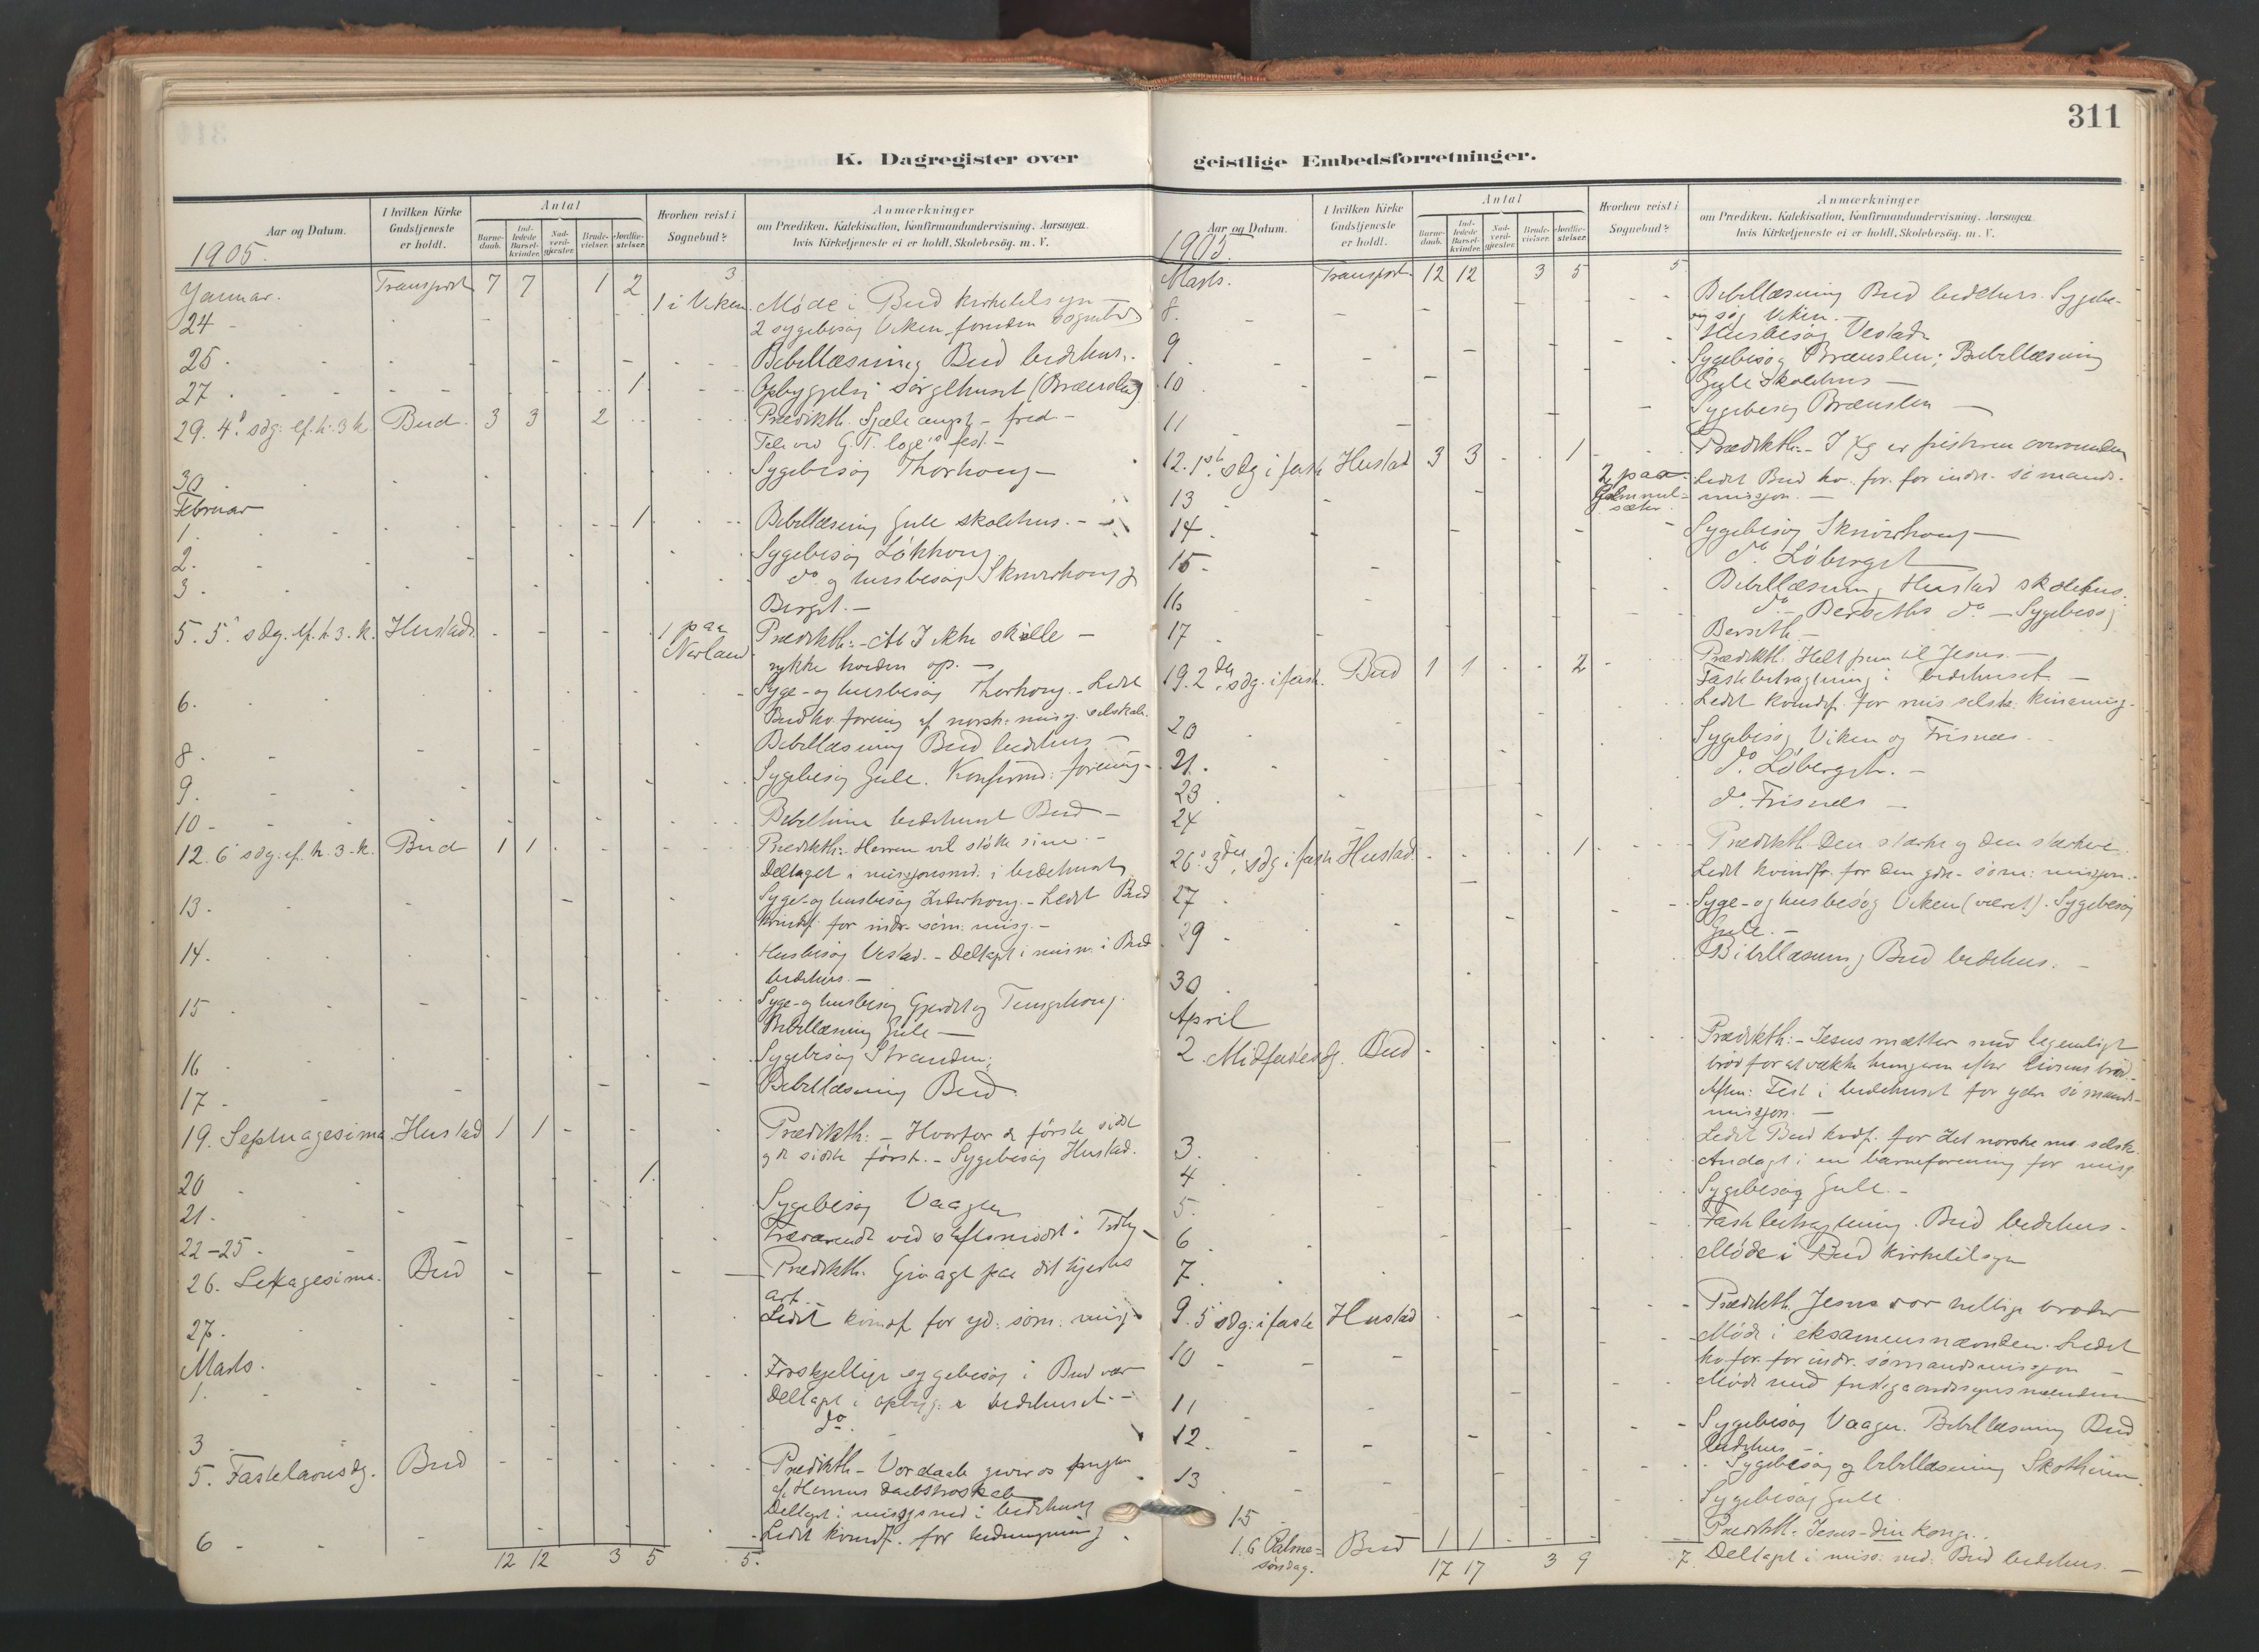 311
K. Dagregister over
geistlige Embedsforretninger.
Aar og Datum.
I hvilken Kirke Gudstjeneste er holdt.
Antal
Barnedaab.
Indledede Barselkvinder.
Nadverdgjester.
Brudevielser.
Jordfæstelser.
Hvorhen reist i Sognebud?
Anmærkninger
om Prædiken. Katekisation, Konfirmandundervisning. Aarsagen
hvis Kirketjeneste ei er holdt. Skolebesög. m. V.
1905.
Januar. Transport 7 7 1 2 3
24 - 1 i Viken. Møde i Bud kirketilsyn -
2 sygebesøg Viken foruden sognebud
25. Bibellæsning Bud bedehus.
27. 1 Opbyggelse sørgehuset (Brænslen)
29. 4. sdg. ef. h. 3 k. Bud. 3 3 2 Prædikth. Sjæle - fred -
Tale ved G. T. loge's fest. -
30. Sygebesøg Thorhoug -
Februar
1. 1 Bibellæsning Gule skolehus. -
2. Sygebesøg Løkhoug
3. do og husbesøg Sknorhoug og
Berget. -
5. 5. sdg. ef. h. 3. k. Hustad. 1 paa Nerland Prædikth: - At I ikke skulle -
rykke hveden op. -
6. Syge- og husbesøg Thorhoug. - Ledet
Bud kv. forening af norsk. misj. selskab.
8. Bibellæsning Bud bedehus -
9. Sygebesøg Gule. Konfirmd: forening -
10 - Bibeltime bedehuset Bud -
12. 6 sdg. ef. h. 3. k. Bud 1 1 Prædikth: - Herren vil støtte sine. -
Deltaget i misjonsmd. i bedehuset
13. Syge- og husbesøg - Ledet Bud
kvindf. for indr. søm. misj. -
14. Husbesøg Vestad. - Deltaget i mism. i Bud
bedehus. -
15 Syge- og husbesøg Gjerdet og Tungehoug.
Bibellæsning Gule -
16 Sygebesøg Stranden.
17 - Bibellæsning Bud.
19. Septuagesima. Hustad 1 1 Prædikth: - Hvorfor de første sidst
og de sidste først. - Sygebesøg Hustad.
20 1.
21. Sygebesøg Vaagen
22-25. Fraværende ved skiftsmødet i
26. Sexagesima. Bud Prædikth. Giv agt paa dit hjertes
art. -
27. Ledet kvindf. for yd. søm. misj.
Marts.
1. Forskjellige sygebesøg i Bud vær
Deltaget i opbyg. i bedehuset. -
3 do.
5. Fastelavnsdg. Bud Prædikth - Vor daab giver os frugten
af Herrens daabs
Deltaget i misjonsmd i bedehuset
6 - Ledet kvindf. for hedningemisj
12 12 3 5 5.
Aar og Datum.
I hvilken Kirke Gudstjeneste er holdt.
Antal
Barnedaab.
Indledede Barselkvinder.
Nadverdgjester.
Brudevielser.
Jordfæstelser.
Hvorhen reist i Sognebud?
Anmærkninger
om Prædiken. Katekisation, Konfirmandundervisning. Aarsagen
hvis Kirketjeneste ei er holdt. Skolebesög. m. V.
1905.
Marts. Transport. 12 12 3 5 5
8. Bibellæsning Bud bedehus. Sygebe-
søg Viken. -
9 Husbesøg Vestad.
10 Sygebesøg Brænslen; Bibellæsning
Gule Skolehus -
11 Sygebesøg Brænslen -
12. 1ste sdg i faste Hustad 3 3 1 Prædikth. - I er fristeren overvunden
13 2 paa Gammelsæter Ledet Bud kv. for. for indr. sømands-
misjon. -
14. Sygebesøg Sknorhoug -
15 - do. Løberget
16 Bibellæsning Hustad skolehus.
17 do. - Berseths do - Sygebesøg
Berseth. -
19. 2den sdg. i fast. Bud 1 1 2 Prædikth. Helt frem til Jesus. -
Fastebetragtning i bedehuset. -
20 Ledet kvindef. for mis. selsk. kinamisj.
21. Sygebesøg Viken og Frisnes.
23 do. Løberget. -
24 do. Frisnes -
26. 3die sdg i faste Hustad. 1 Prædikth. Den stærke og den stærkere.
27 Ledet kvindfr. for den ydr. søm. misjon.
29 Syge- og husbesøg Viken (været). Sygebesøg
Gule. -
30 Bibellæsning Bud bedehus. -
April
2. Midfastesdg. Bud Prædikth: - Jesus mætter med legemligt
brød for at vække hungeren efter livsens brød. -
Aften: Fest i bedehuset for ydre sømands-
misjon. -
3. Ledet Bud kvdf. for det norske ms selsk.
4 Andagt i en barneforening for misj.
5. Sygebesøg Gule. -
6 Fastebetragtning. Bud bedehus.
7. Møde i Bud kirketilsyn
9. 5 sdg: i faste Hustad Prædikth. Jesus vor hellige broder
10 - Møde i eksamensnævnden. Ledet
kv. for. for indr. sømandsmisjon -
11 Møde med
12. Sygebesøg Vaagen. Bibellæsning Bud
bedehus -
13 Sygebesøg og bibellæsning Skotheim
15 Sygebesøg Gule.
16 Palme-
søndag. Bud 1 1 Prædikth. Jesus - din konge.
17 17 3 9 7. Deltaget i miss. md. Bud bedehus. -